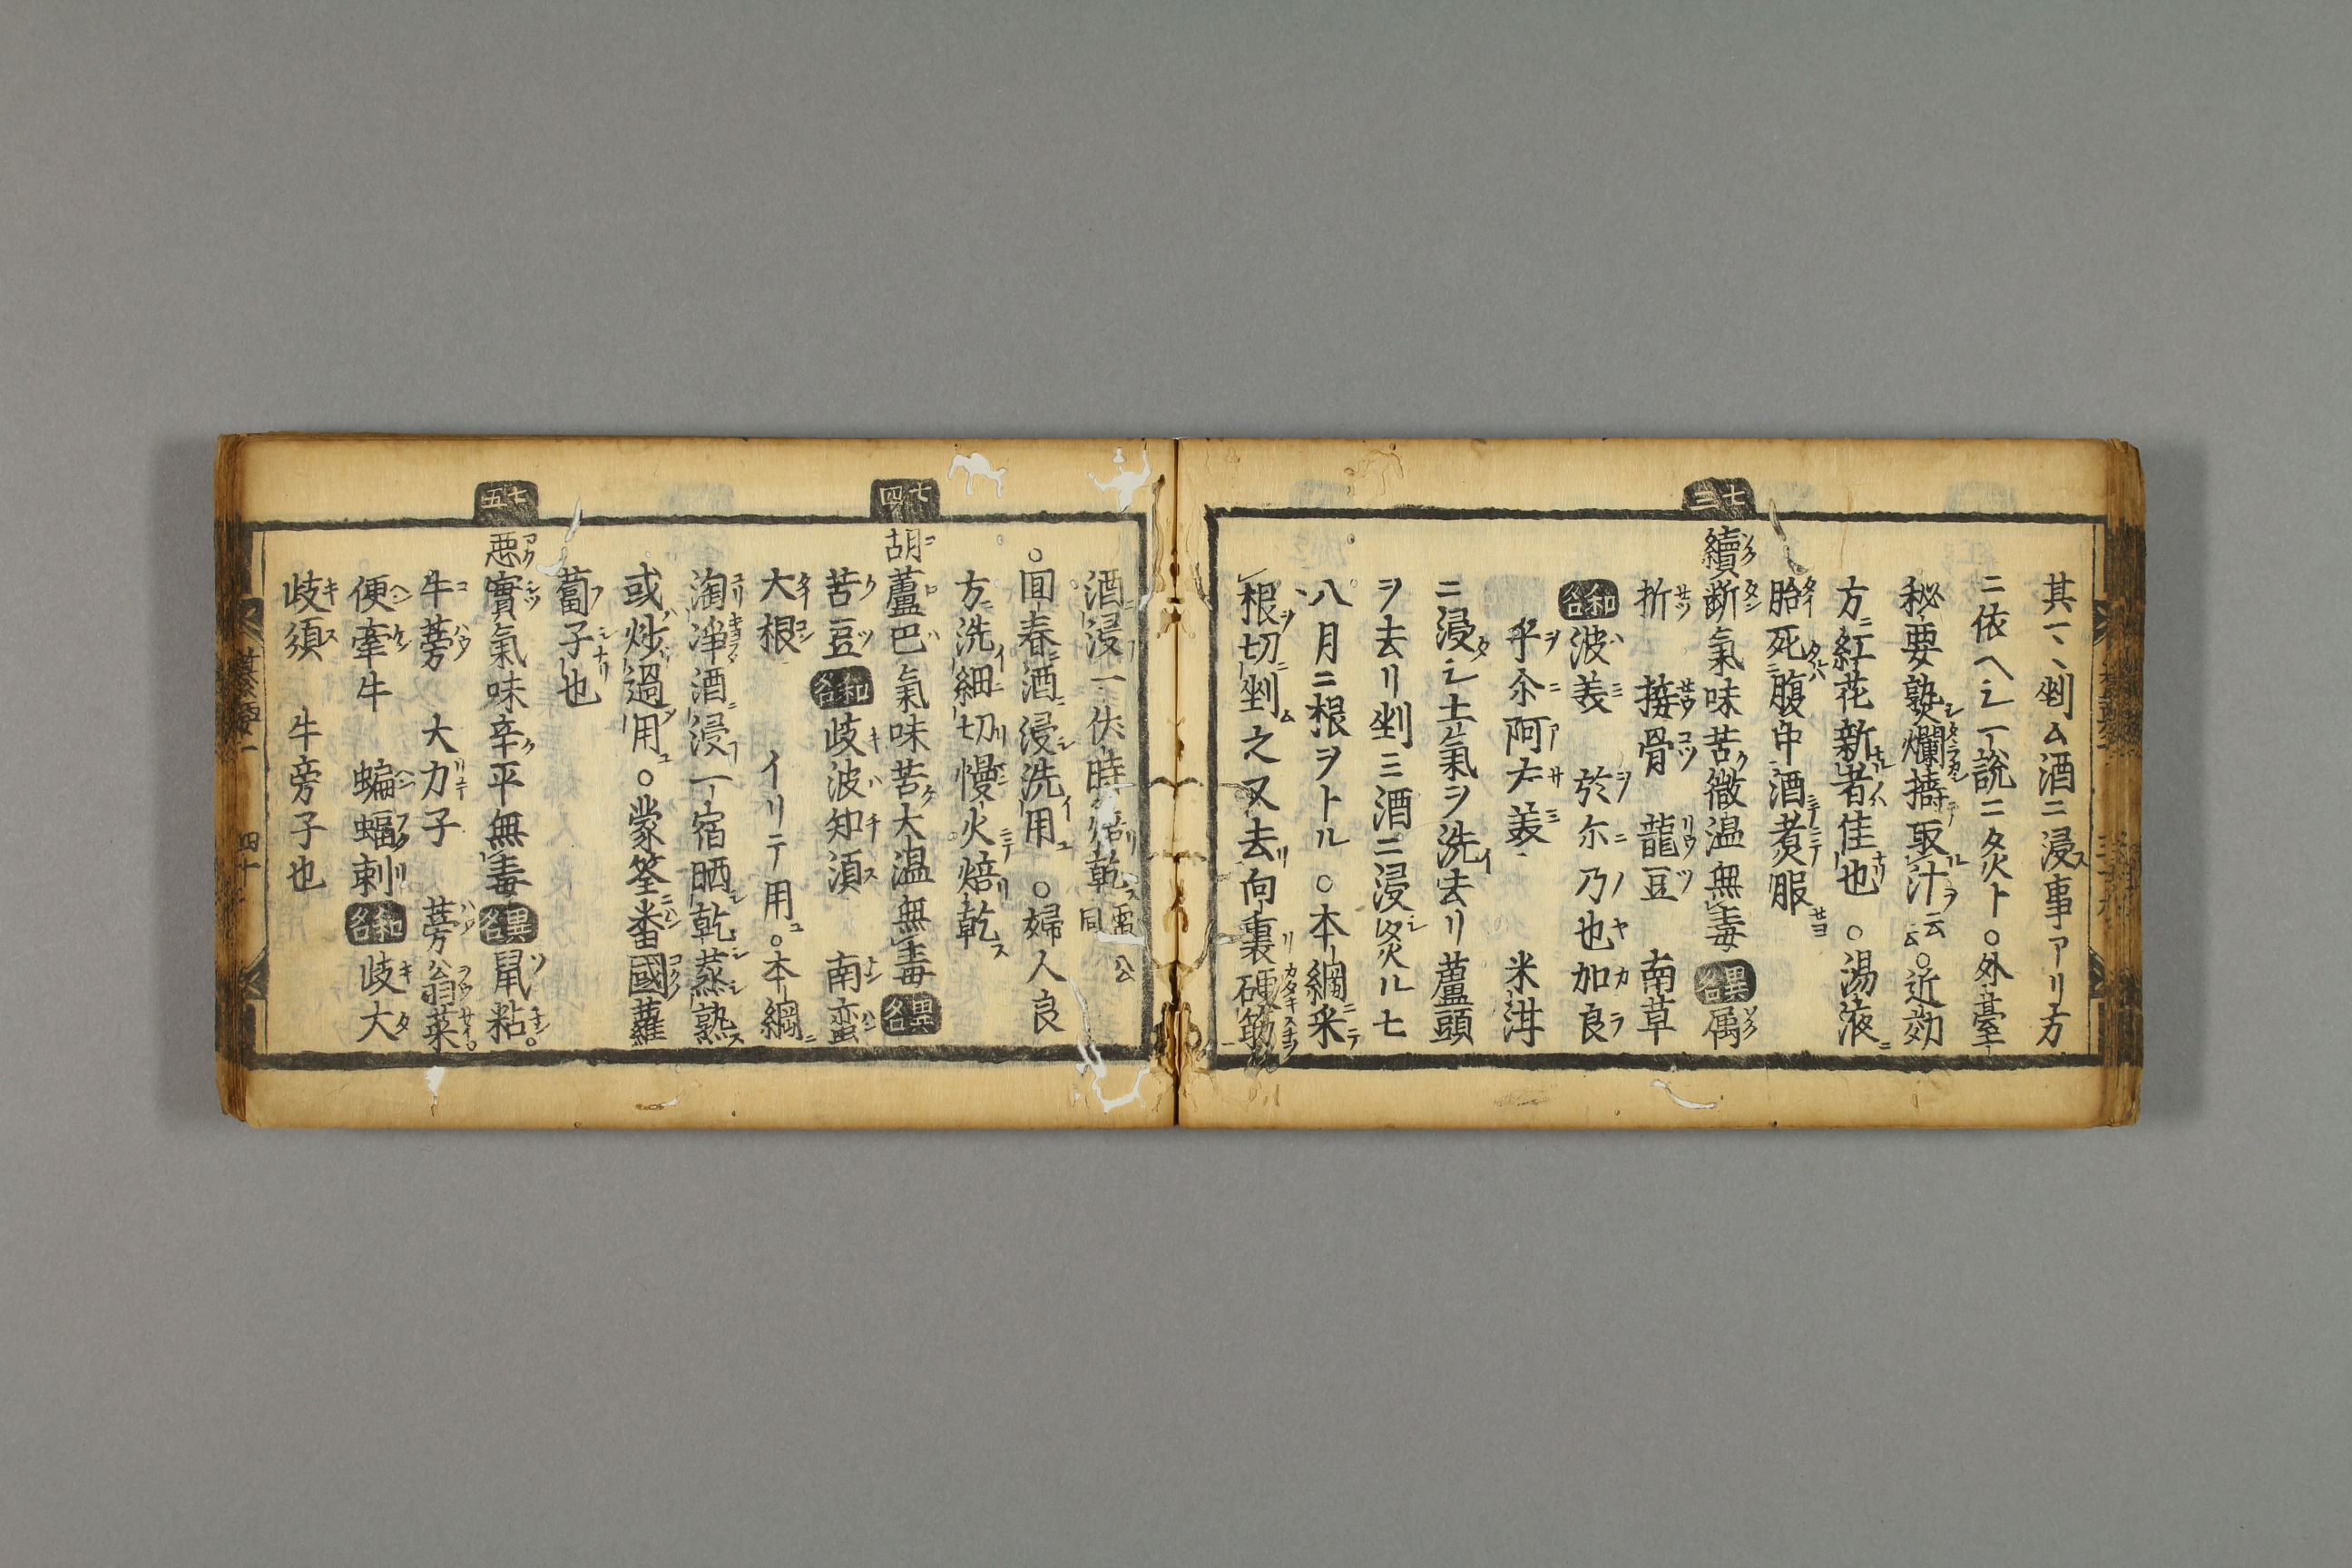 其一、剉ム酒ニ浸ス事アリ方
ニ依ヘシ一說ニ炙ト○外臺
秘要熟爛擣取汁云云○近効
方紅花新者佳也○湯液
胎死腹中酒煮服
七三
續斷氣味苦微温無毒異名属
折 接骨 龍豆 南草
和名波美 於尓乃也加良
乎尒阿左美 米泔
ニ浸シ土氣ヲ洗去リ蘆頭
ヲ去リ剉ミ酒ニ浸炙ル七
八月ニ根ヲトル○本綱采
根切剉之又去向裏硬筋
酒浸一伏時焙乾 雷公同
○囬春酒浸洗用○婦人良
方洗細切慢火焙乾
七四
胡蘆巴氣味苦大温無毒異名
苦豆和名岐波知須 南蛮
大根 イリテ用○本綱
淘浄酒浸一宿晒乾蒸熟
或炒過用○蒙筌番國蘿
蔔子也
七五
惡實氣味辛平無毒異名鼠粘
牛蒡 大力子 蒡翁菜
便牽牛 蝙蝠刺和名岐大
岐須 牛旁子也
四十